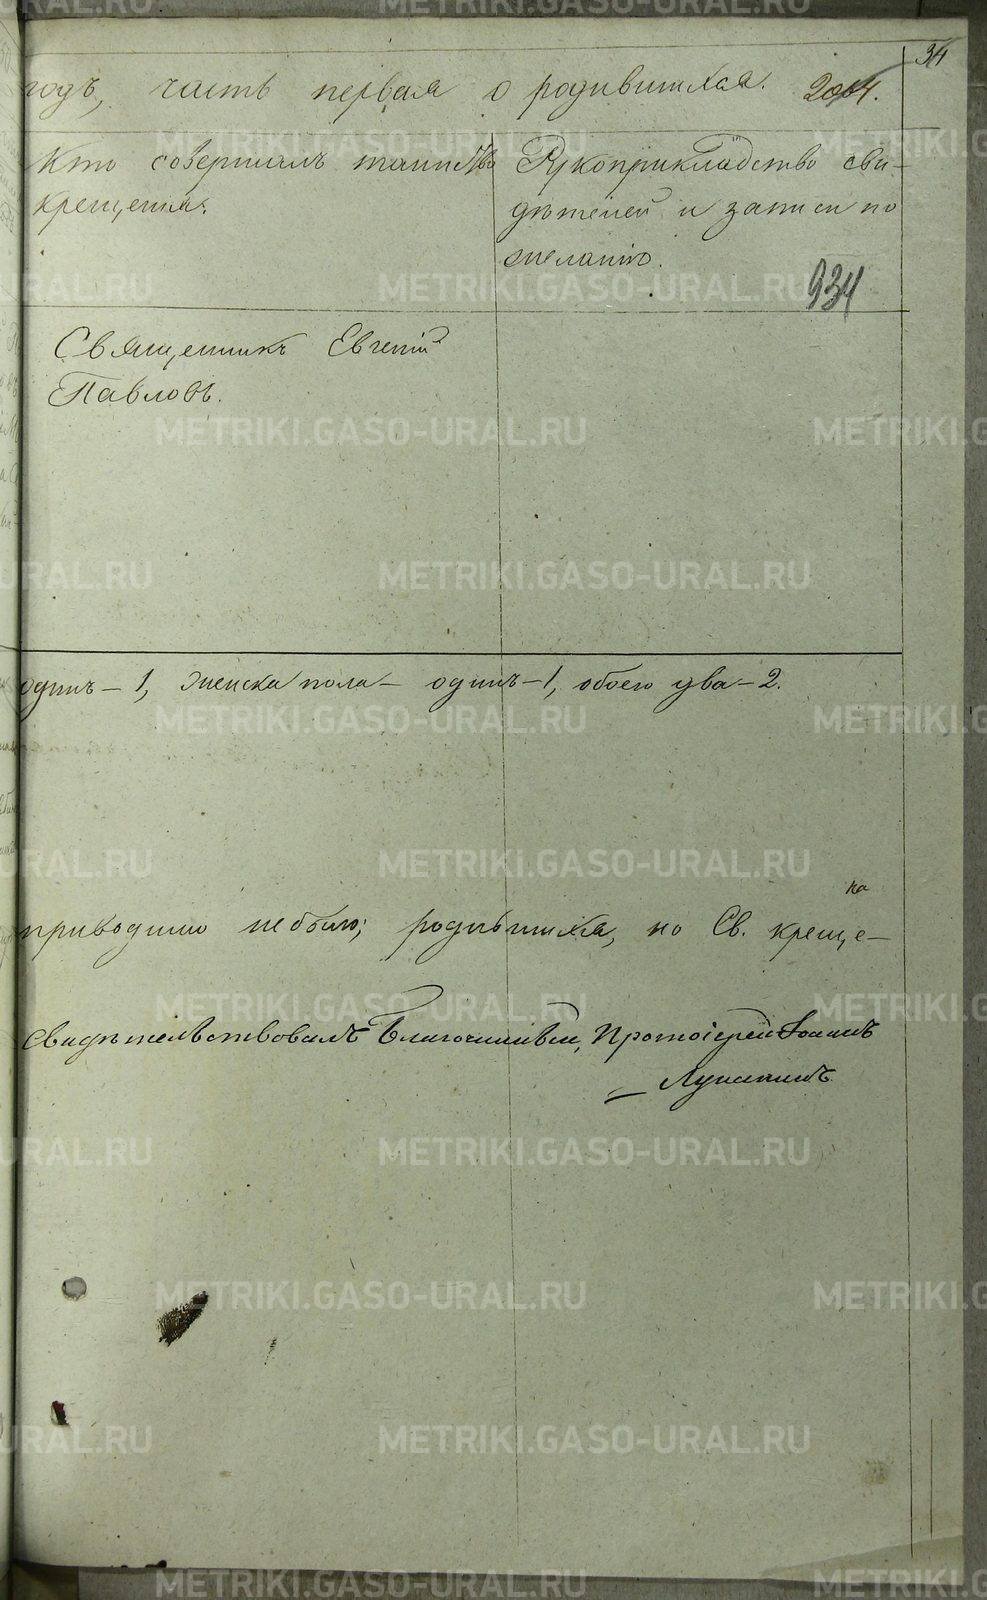 34
годъ, часть первая о родившихся.
Кто совершалъ таинство
крещенія.
Рукоприкладство сви-
дѣтелей и записи по
желанію.
934
Священникъ Евгеній
Павловъ.
одинъ - 1, женска пола - одинъ - 1, обоего два - 2.
на
приводимо не было; родившихся, но Св. креще-
Свидѣтельствовалъ Благочинный, Протоіерей Іоаннъ
Лукинъ
METRIKI.GASO-URAL.RU